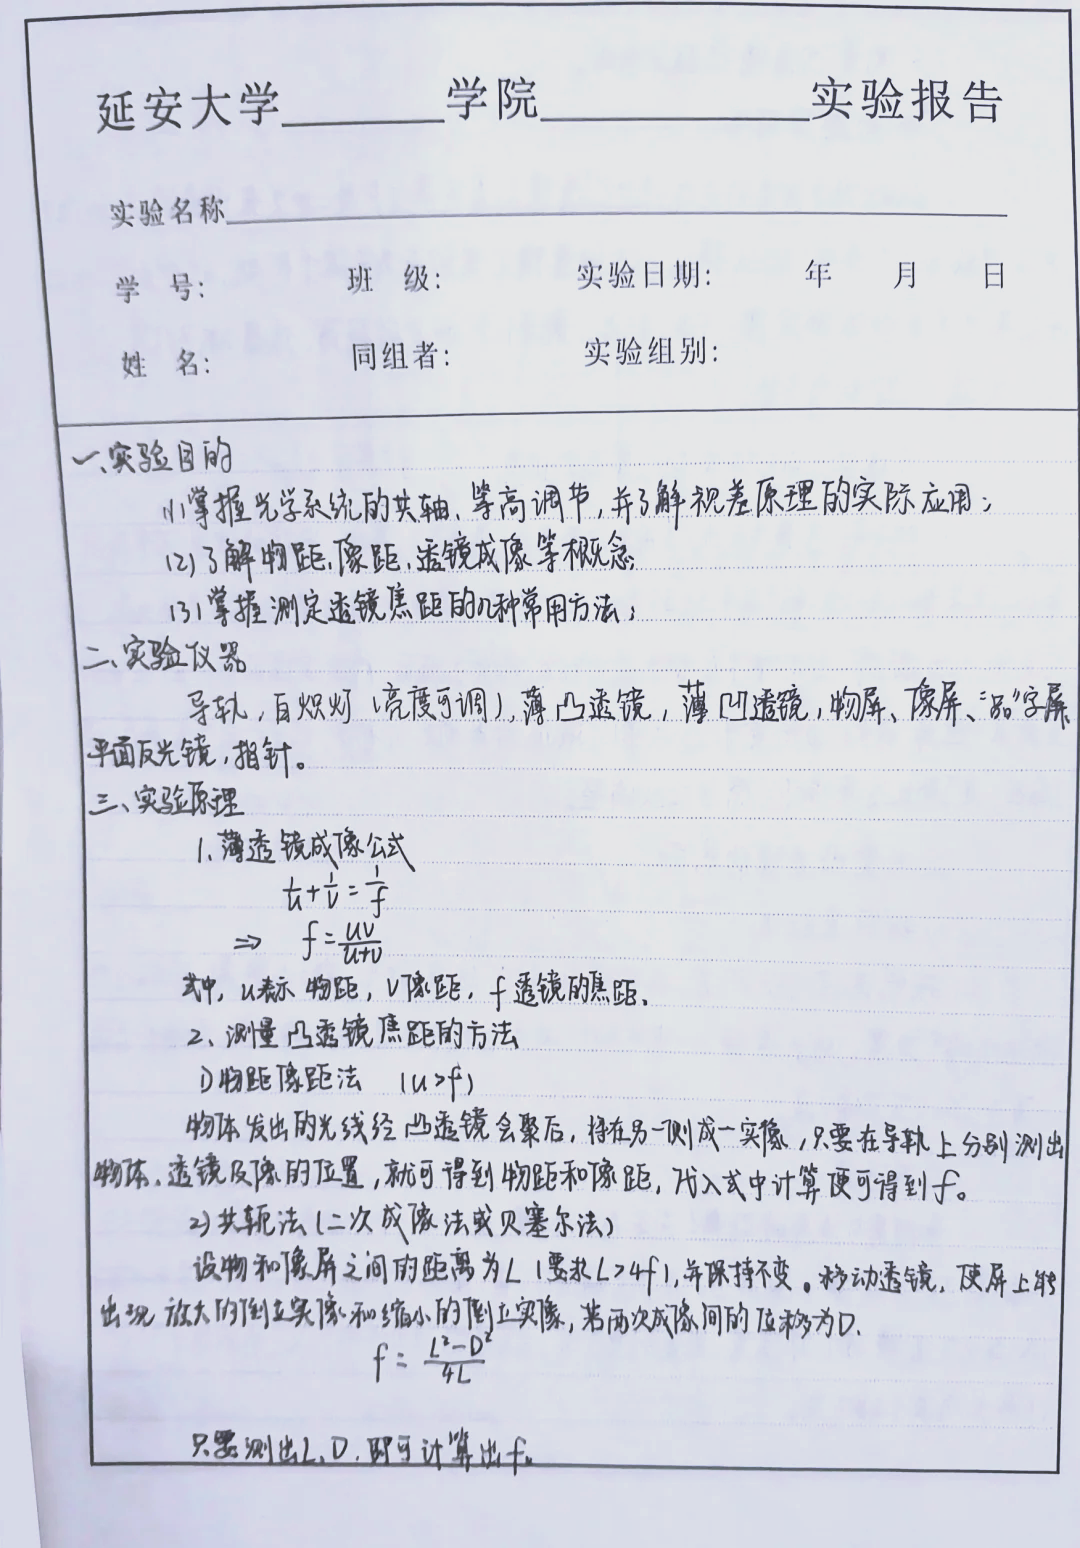 延安大学______学院__________实验报告
实验名称
学 号: 班 级: 实验日期: 年 月 日
姓 名: 同组者: 实验组别:
一、实验目的
(1)掌握光学系统的共轴、等高调节,并了解视差原理的实际应用;
(2)了解物距、像距、透镜成像等概念;
(3)掌握测定透镜焦距的几种常用方法;
二、实验仪器
导轨,白炽灯(亮度可调),薄凸透镜,薄凹透镜,物屏、像屏、“品”字屏
平面反光镜,指针。
三、实验原理
1、薄透镜成像公式
1/u+1/v=1/f
⇒ f=uv/(u+v)
式中,u表示物距,v像距,f透镜的焦距.
2、测量凸透镜焦距的方法
1)物距像距法 (u>f)
物体发出的光线经凸透镜会聚后,将在另一侧成一实像,只要在导轨上分别测出
物体、透镜及像的位置,就可得到物距和像距,代入式中计算便可得到f。
2)共轭法(二次成像法或贝塞尔法)
设物和像屏之间的距离为L(要求L>4f),并保持不变。移动透镜,使屏上
出现放大的倒立实像和缩小的倒立实像,若两次成像间的位移为D.
f=(L²-D²)/4L
只要测出L、D,即可计算出f。